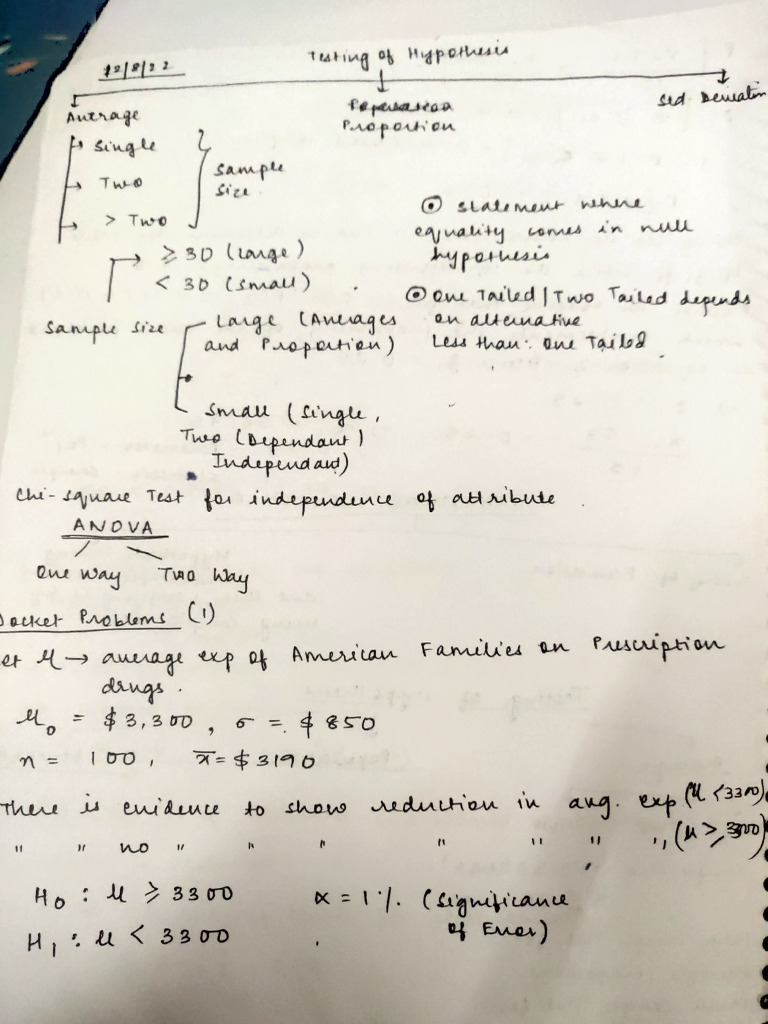 12/8/22
Testing of Hypothesis
Average
Proportion
Std Deviation
Single
Two
> Two
Sample
Size.
≥ 30 (Large)
< 30 (Small)
Sample Size
Large (Averages
and Proportion)
Small (Single,
Two (Dependant |
Independant)
⊙ Statement where
equality comes in null
hypothesis
⊙ One Tailed | Two Tailed depends
on alternative
Less than: One Tailed
Chi-square Test for independence of attribute
ANOVA
One Way Two Way
Problems (1)
μ → average exp of American Families on Prescription
drugs.
μ₀ = $3,300, σ = $850
n = 100, x̄ = $3190
There is evidence to show reduction in avg. exp (μ < 3300)
" " no " " " " " " " (μ ≥ 3300)
H₀ : μ ≥ 3300
α = 1%. (Significance
of Error)
H₁ : μ < 3300